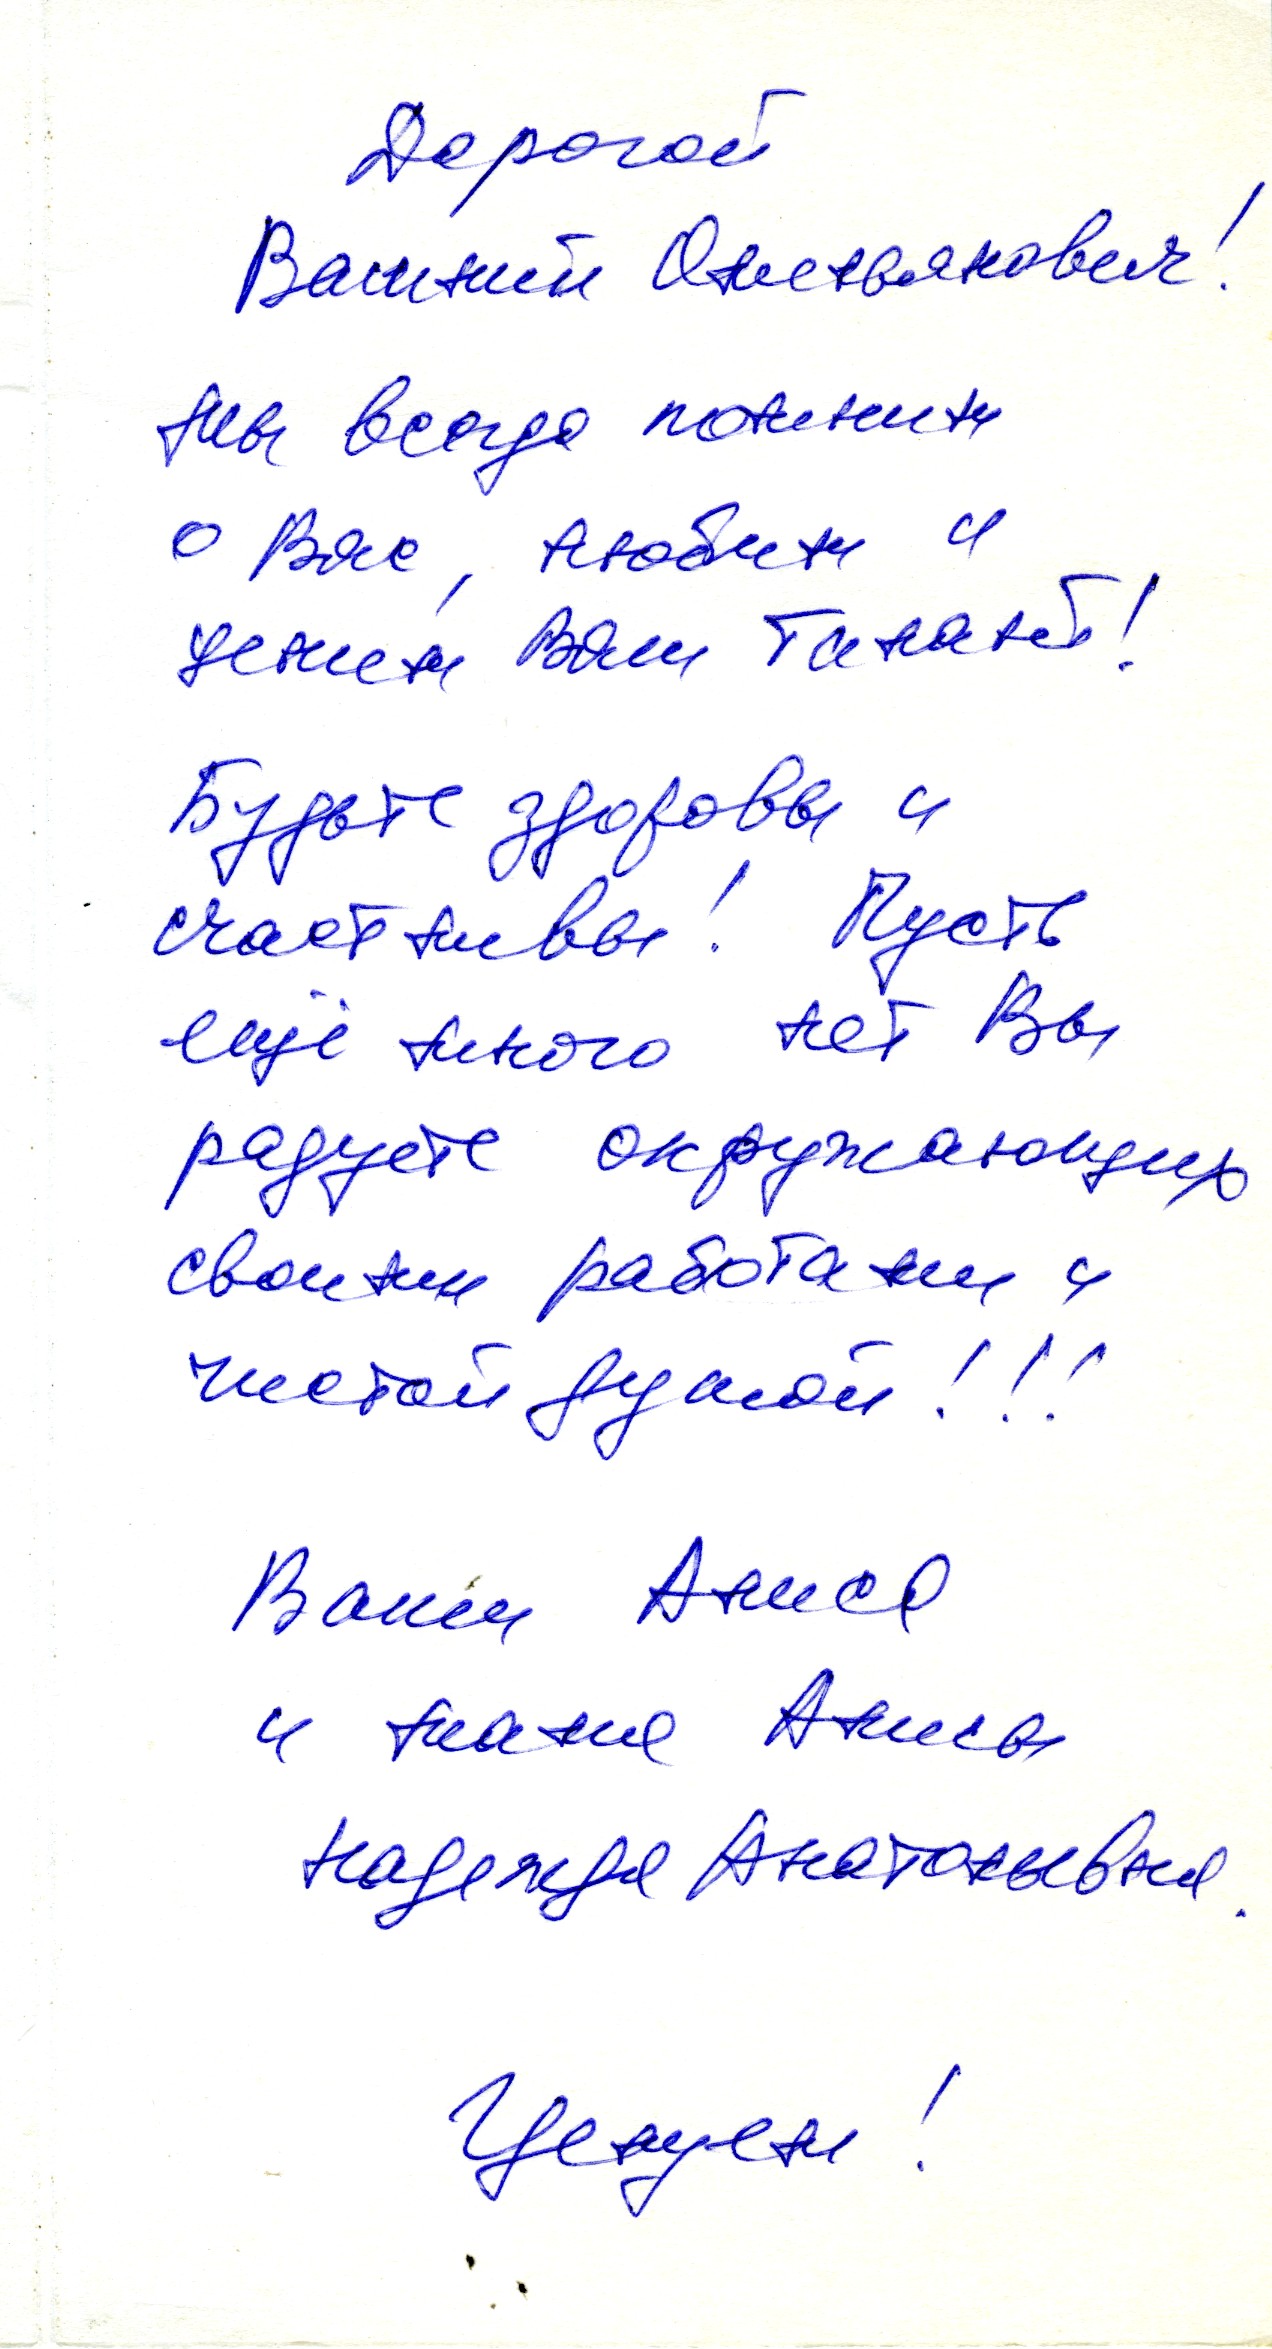 Дорогой
Василий Омельянович!
мы всегда помним
о Вас, любим и
ценим Ваш талант!
Будьте здоровы и
счастливы! Пусть
ещё много лет Вы
радуете окружающих
своими работами и
чистой душой!!!
Ваши Алиса
и мама Алисы
Надежда Анатольевна.
Целуем!